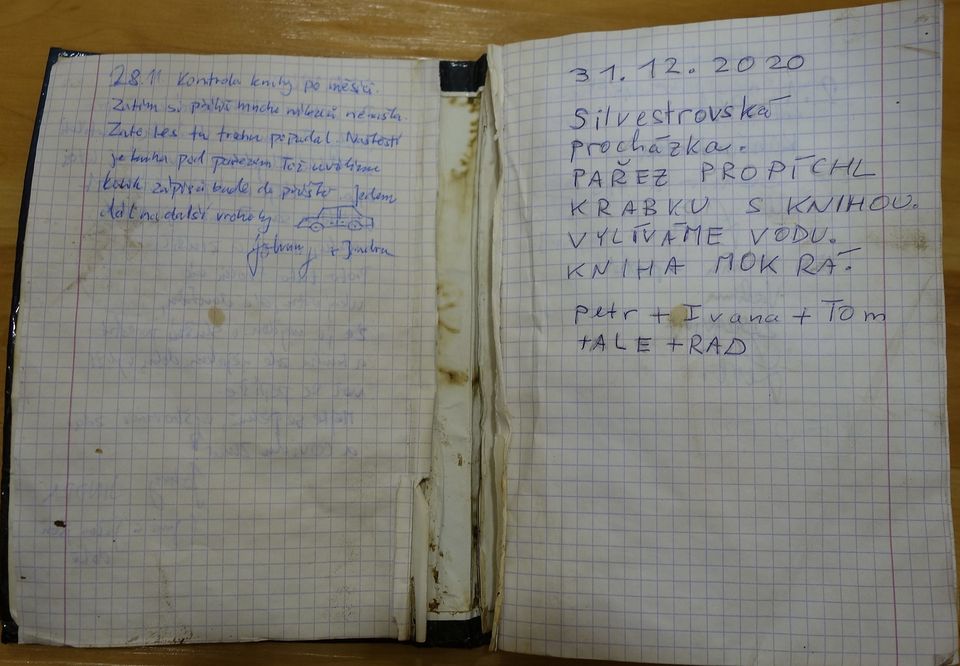 28.11 Kontrola knihy po měsíci.
Zatím si příliš mnoho nikdo
Zato les tu trochu popadal. Naštestí
je kniha pod pařezem. Tož uvidíme
kolik zápisů bude do příště. Jedem
dát na další vrcholy
+ Jindra
31.12.2020
Silvestrovská
procházka.
PAŘEZ PROPÍCHL
KRABKU S KNIHOU.
VYLÍVÁME VODU.
KNIHA MOKRÁ.
Petr + Ivana + Tom
+ALE +RAD